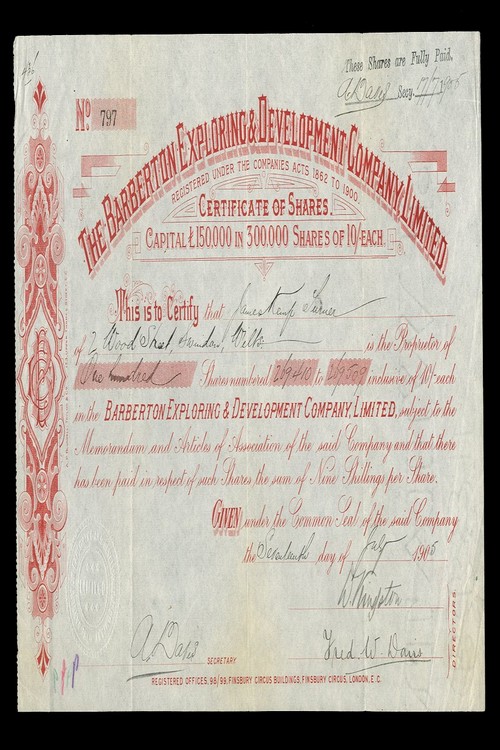 These Shares are Fully Paid.
A. Davis Secy. 17/7/1905
No. 797
THE BARBERTON EXPLORING & DEVELOPMENT COMPANY, LIMITED.
REGISTERED UNDER THE COMPANIES ACTS 1862 TO 1900.
CERTIFICATE OF SHARES.
CAPITAL £150,000 IN 300,000 SHARES OF 10/- EACH.
This is to Certify that James Kemp Turner
of 2 Wood Street, Swindon, Wilts is the Proprietor of
One hundred Shares numbered 219410 to 219509 inclusive of 10/- each
in the BARBERTON EXPLORING & DEVELOPMENT COMPANY, LIMITED, subject to the
Memorandum and Articles of Association of the said Company and that there
has been paid in respect of such Shares the sum of Nine Shillings per Share.
GIVEN under the Common Seal of the said Company
the Seventeenth day of July 1905
W Kingston
DIRECTORS.
A. Davis SECRETARY
Fred. W. Davis
REGISTERED OFFICES, 98/99, FINSBURY CIRCUS BUILDINGS, FINSBURY CIRCUS, LONDON, E.C.